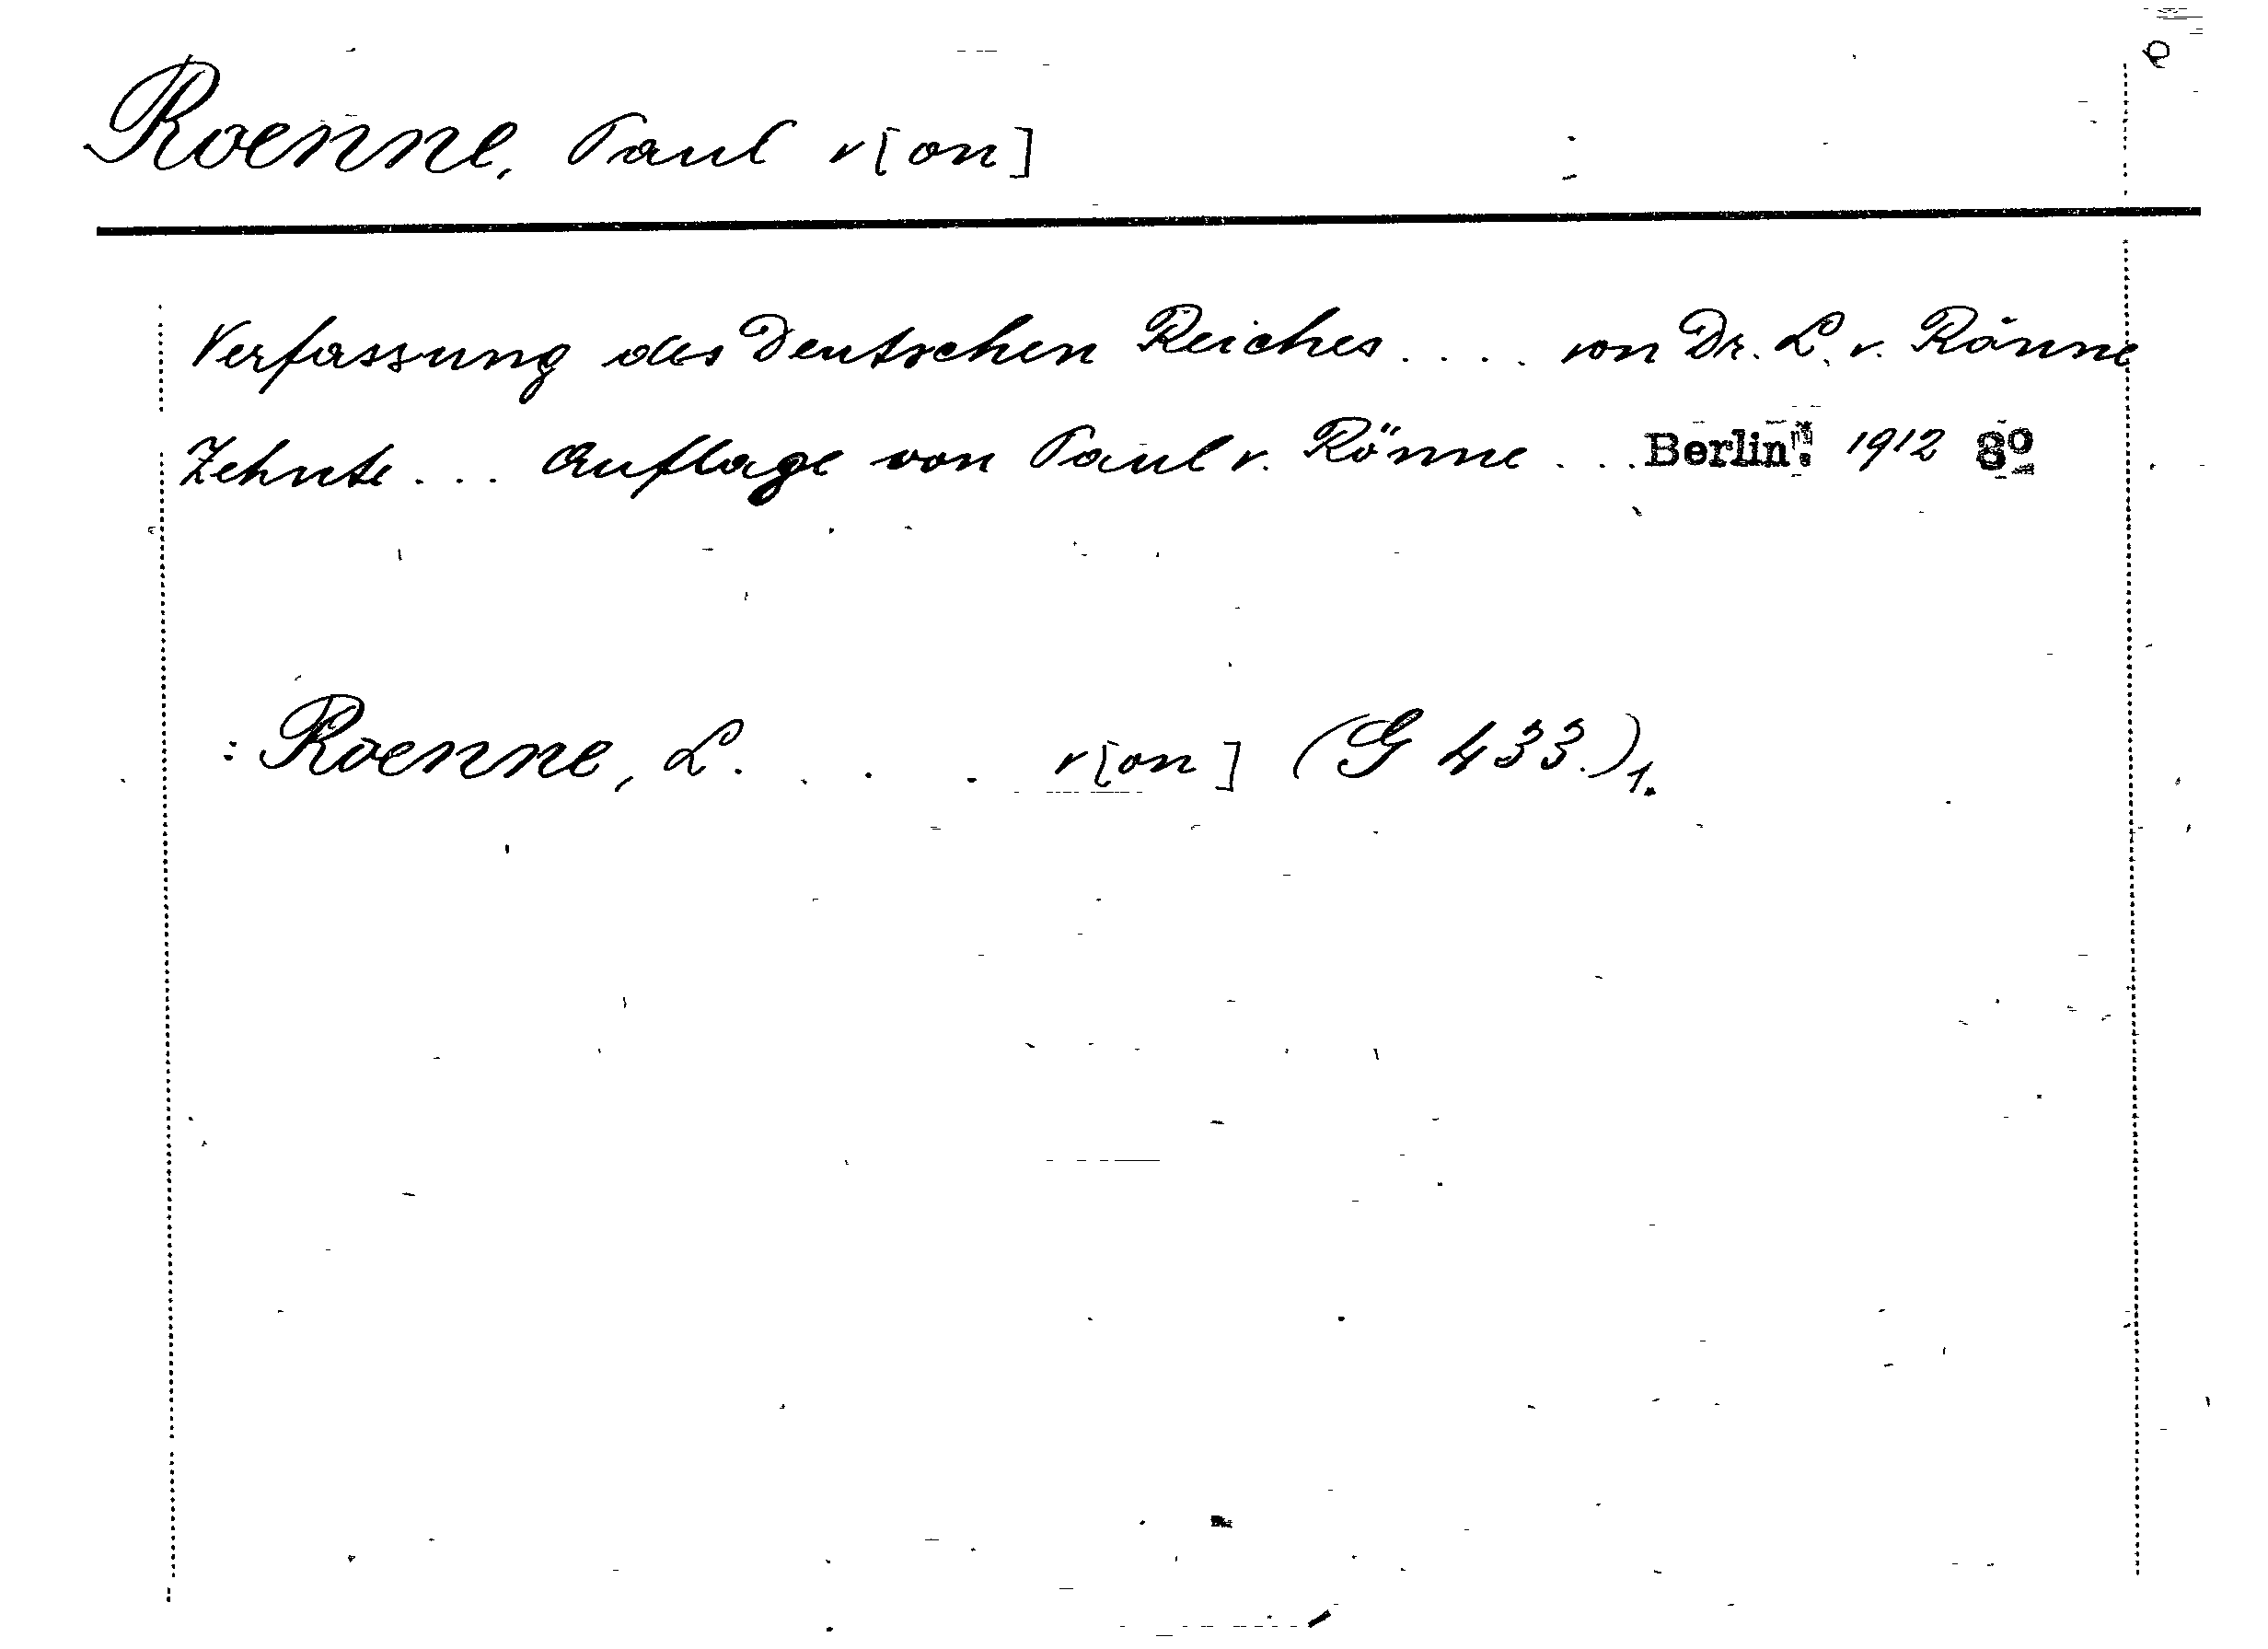 Roenne, Paul v[on]
Verfassung des Deutschen Reiches.... von Dr. L. v. Rönne
Zehnte... Auflage von Paul v. Rönne... Berlin: 1912 8º
: Roenne, L. . . . v[on] (G 433.)1.